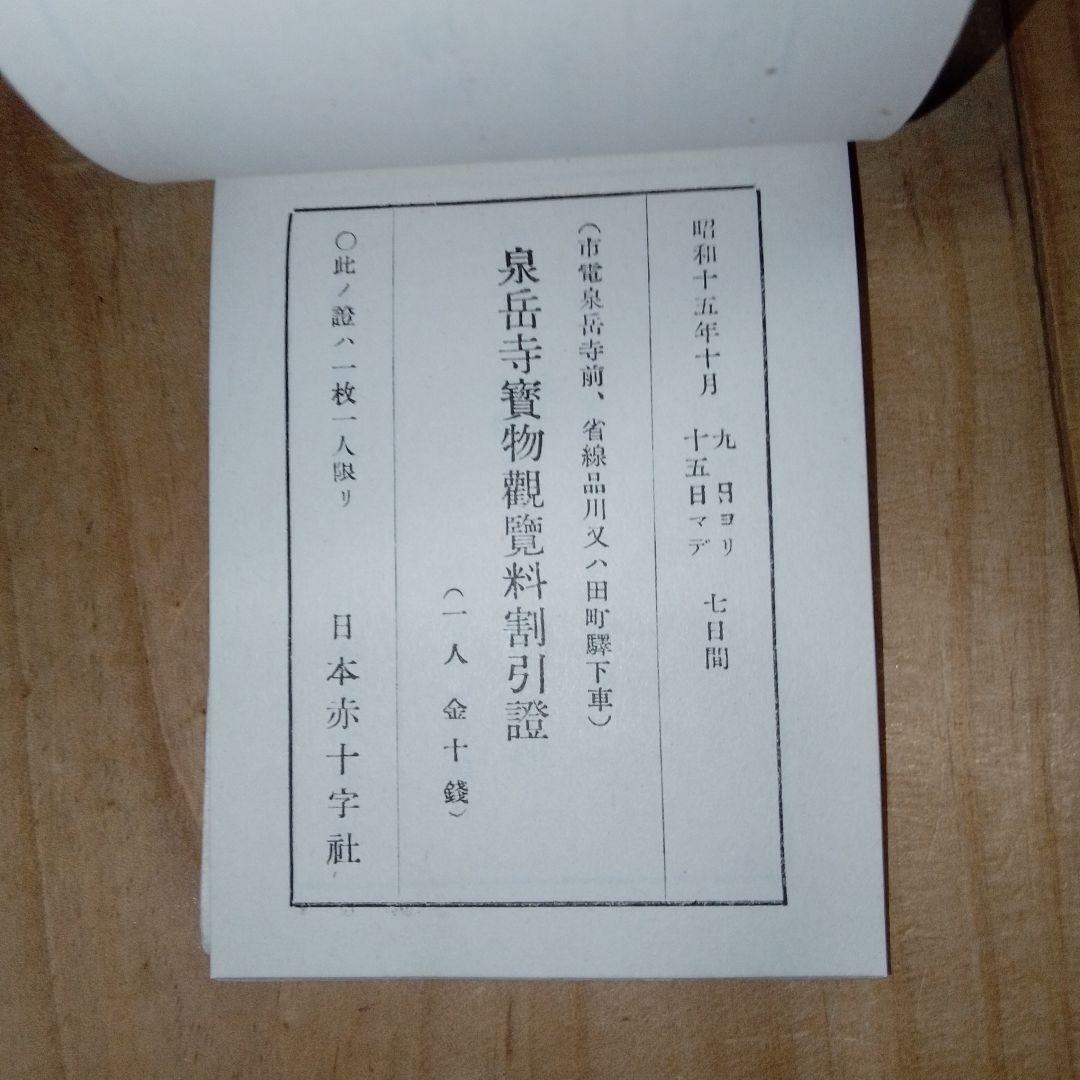 昭和十五年十月 九日ヨリ 十五日マデ 七日間
(市電泉岳寺前、省線品川又ハ田町驛下車)
泉岳寺寳物觀覽料割引證
(一人金十錢)
○此ノ證ハ一枚一人限リ 日本赤十字社